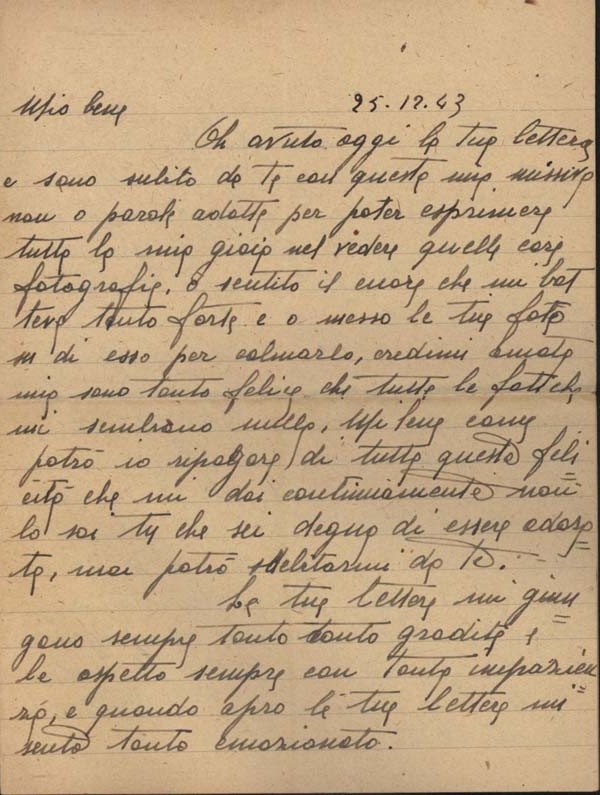 Mio bene 25.12.43
Oh avuto oggi la tua lettera
e sono subito da te con questa mia missiva
non o parole adatte per poter esprimere
tutta la mia gioia nel vedere quelle care
fotografie, o sentito il cuore che mi bat
teva tanto forte e o messo le tue foto
su di esso per calmarlo, credimi amata
mia sono tanto felice che tutte le fatiche
mi sembrano nulla, Mio bene come
potrò io ripagare di tutta questa feli
cità che mi dai continuamente non
lo sai tu che sei degna di essere adora=
ta, mai potrò sdebitarmi da te.
Le tue lettere mi giun=
gono sempre tanto tanto gradite e
le aspetto sempre con tanta impazien=
za, e quando apro le tue lettere mi
sento tanto emozionato.